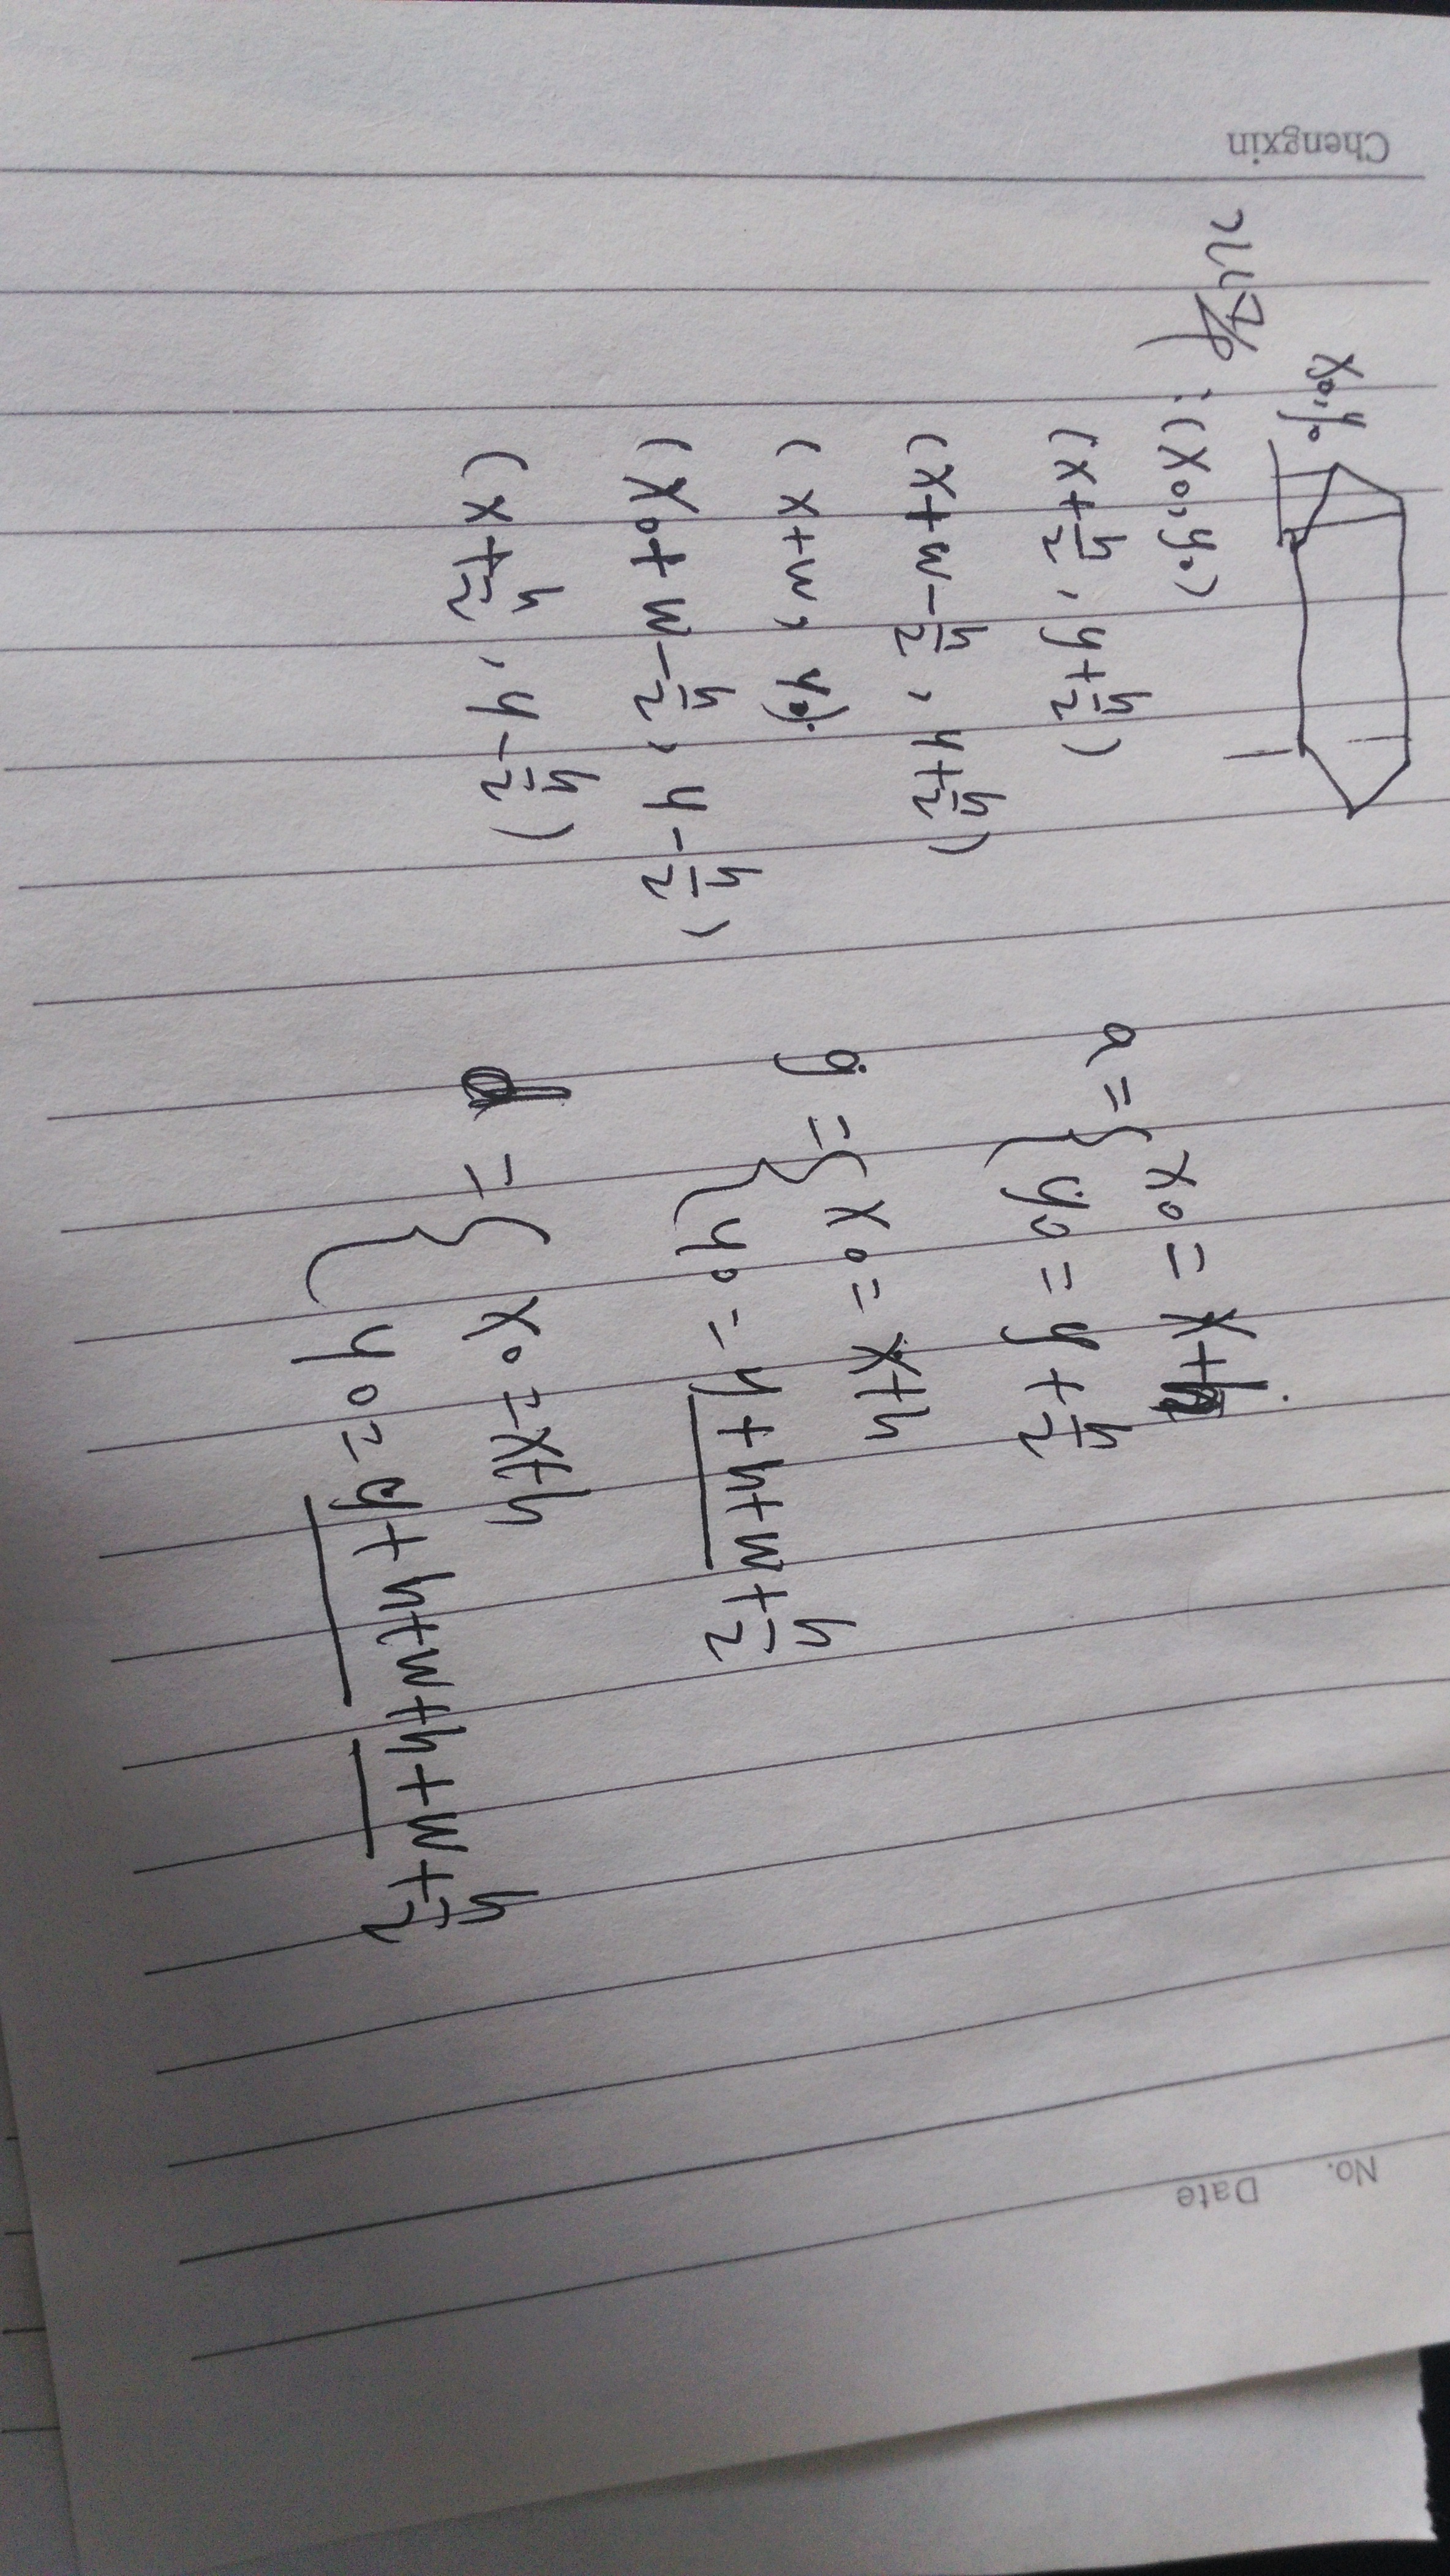 Chengxin
No. Date
x₀, y₀
: (x₀, y₀)
(x+h/2, y+h/2)
(x+w-h/2, y+h/2)
(x+w, y₀)
(x₀+w-h/2, y-h/2)
(x+h/2, y-h/2)
a = { x₀ = x+h
y₀ = y+h/2
g = { x₀ = x+h
y₀ = y+h+w+h/2
d = { x₀ = x+h
y₀ = y+h+w+h+w+h/2